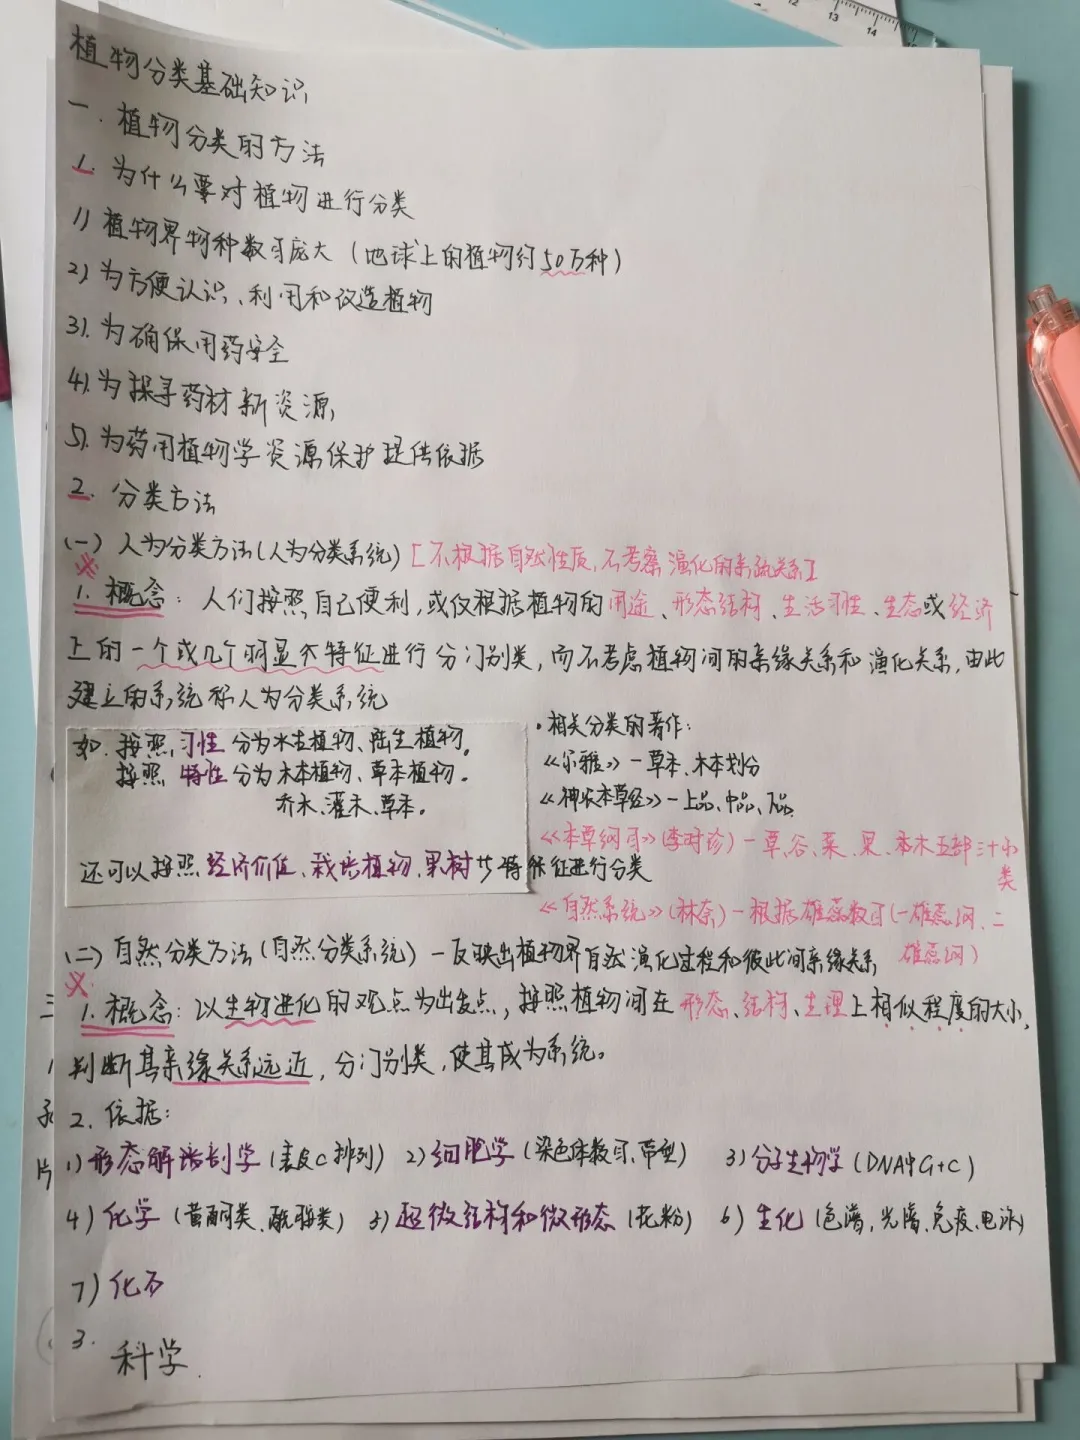 植物分类基础知识
一.植物分类的方法
1.为什么要对植物进行分类
1)植物界物种数目庞大(地球上的植物约50万种)
2)为方便认识、利用和改造植物
3).为确保用药安全
4).为探寻药材新资源
5).为药用植物学资源保护提供依据
2.分类方法
(一)人为分类方法(人为分类系统)[不根据自然性质,不考察演化的亲疏关系]
1.概念:人们按照自己便利,或仅根据植物的用途、形态结构、生活习性、生态或经济
上的一个或几个明显大特征进行分门别类,而不考虑植物间的亲缘关系和演化关系,由此
建立的系统称人为分类系统
如.按照习性分为水生植物、陆生植物。
按照特性分为木本植物、草本植物。
乔木、灌木、草本。
还可以按照经济价值、栽培植物、果树等特征进行分类
·相关分类的著作:
《尔雅》-草本、木本划分
《神农本草经》-上品、中品、下品
《本草纲目》(李时珍)-草、谷、菜、果、本木五部三十小
类
《自然系统》(林奈)-根据雄蕊数目(一雄蕊纲、二
雄蕊纲)
(二)自然分类方法(自然分类系统)-反映出植物界自然演化过程和彼此间亲缘关系
1.概念:以生物进化的观点为出发点,按照植物间在形态、结构、生理上相似程度的大小,
判断其亲缘关系远近,分门别类,使其成为系统。
2.依据:
1)形态解剖学(表皮C排列) 2)细胞学(染色体数目、带型) 3)分子生物学(DNA中G+C)
4)化学(黄酮类、酰胺类) 5)超微结构和微形态(花粉) 6)生化(色谱,光谱、免疫、电泳)
7)化石
3.
科学